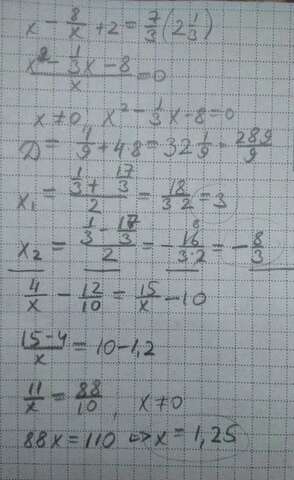 x - 8/x + 2 = 7/3 (2 1/3)
(x² - 1/3x - 8)/x = 0
x ≠ 0, x² - 1/3x - 8 = 0
D = 1/9 + 48 = 32 1/9 = 289/9
x₁ = (1/3 + 17/3)/2 = 18/(3·2) = 3
x₂ = (1/3 - 17/3)/2 = -16/(3·2) = -8/3
4/x - 12/10 = 15/x - 10
(15-4)/x = 10 - 1,2
11/x = 88/10, x ≠ 0
88x = 110 <=> x = 1,25